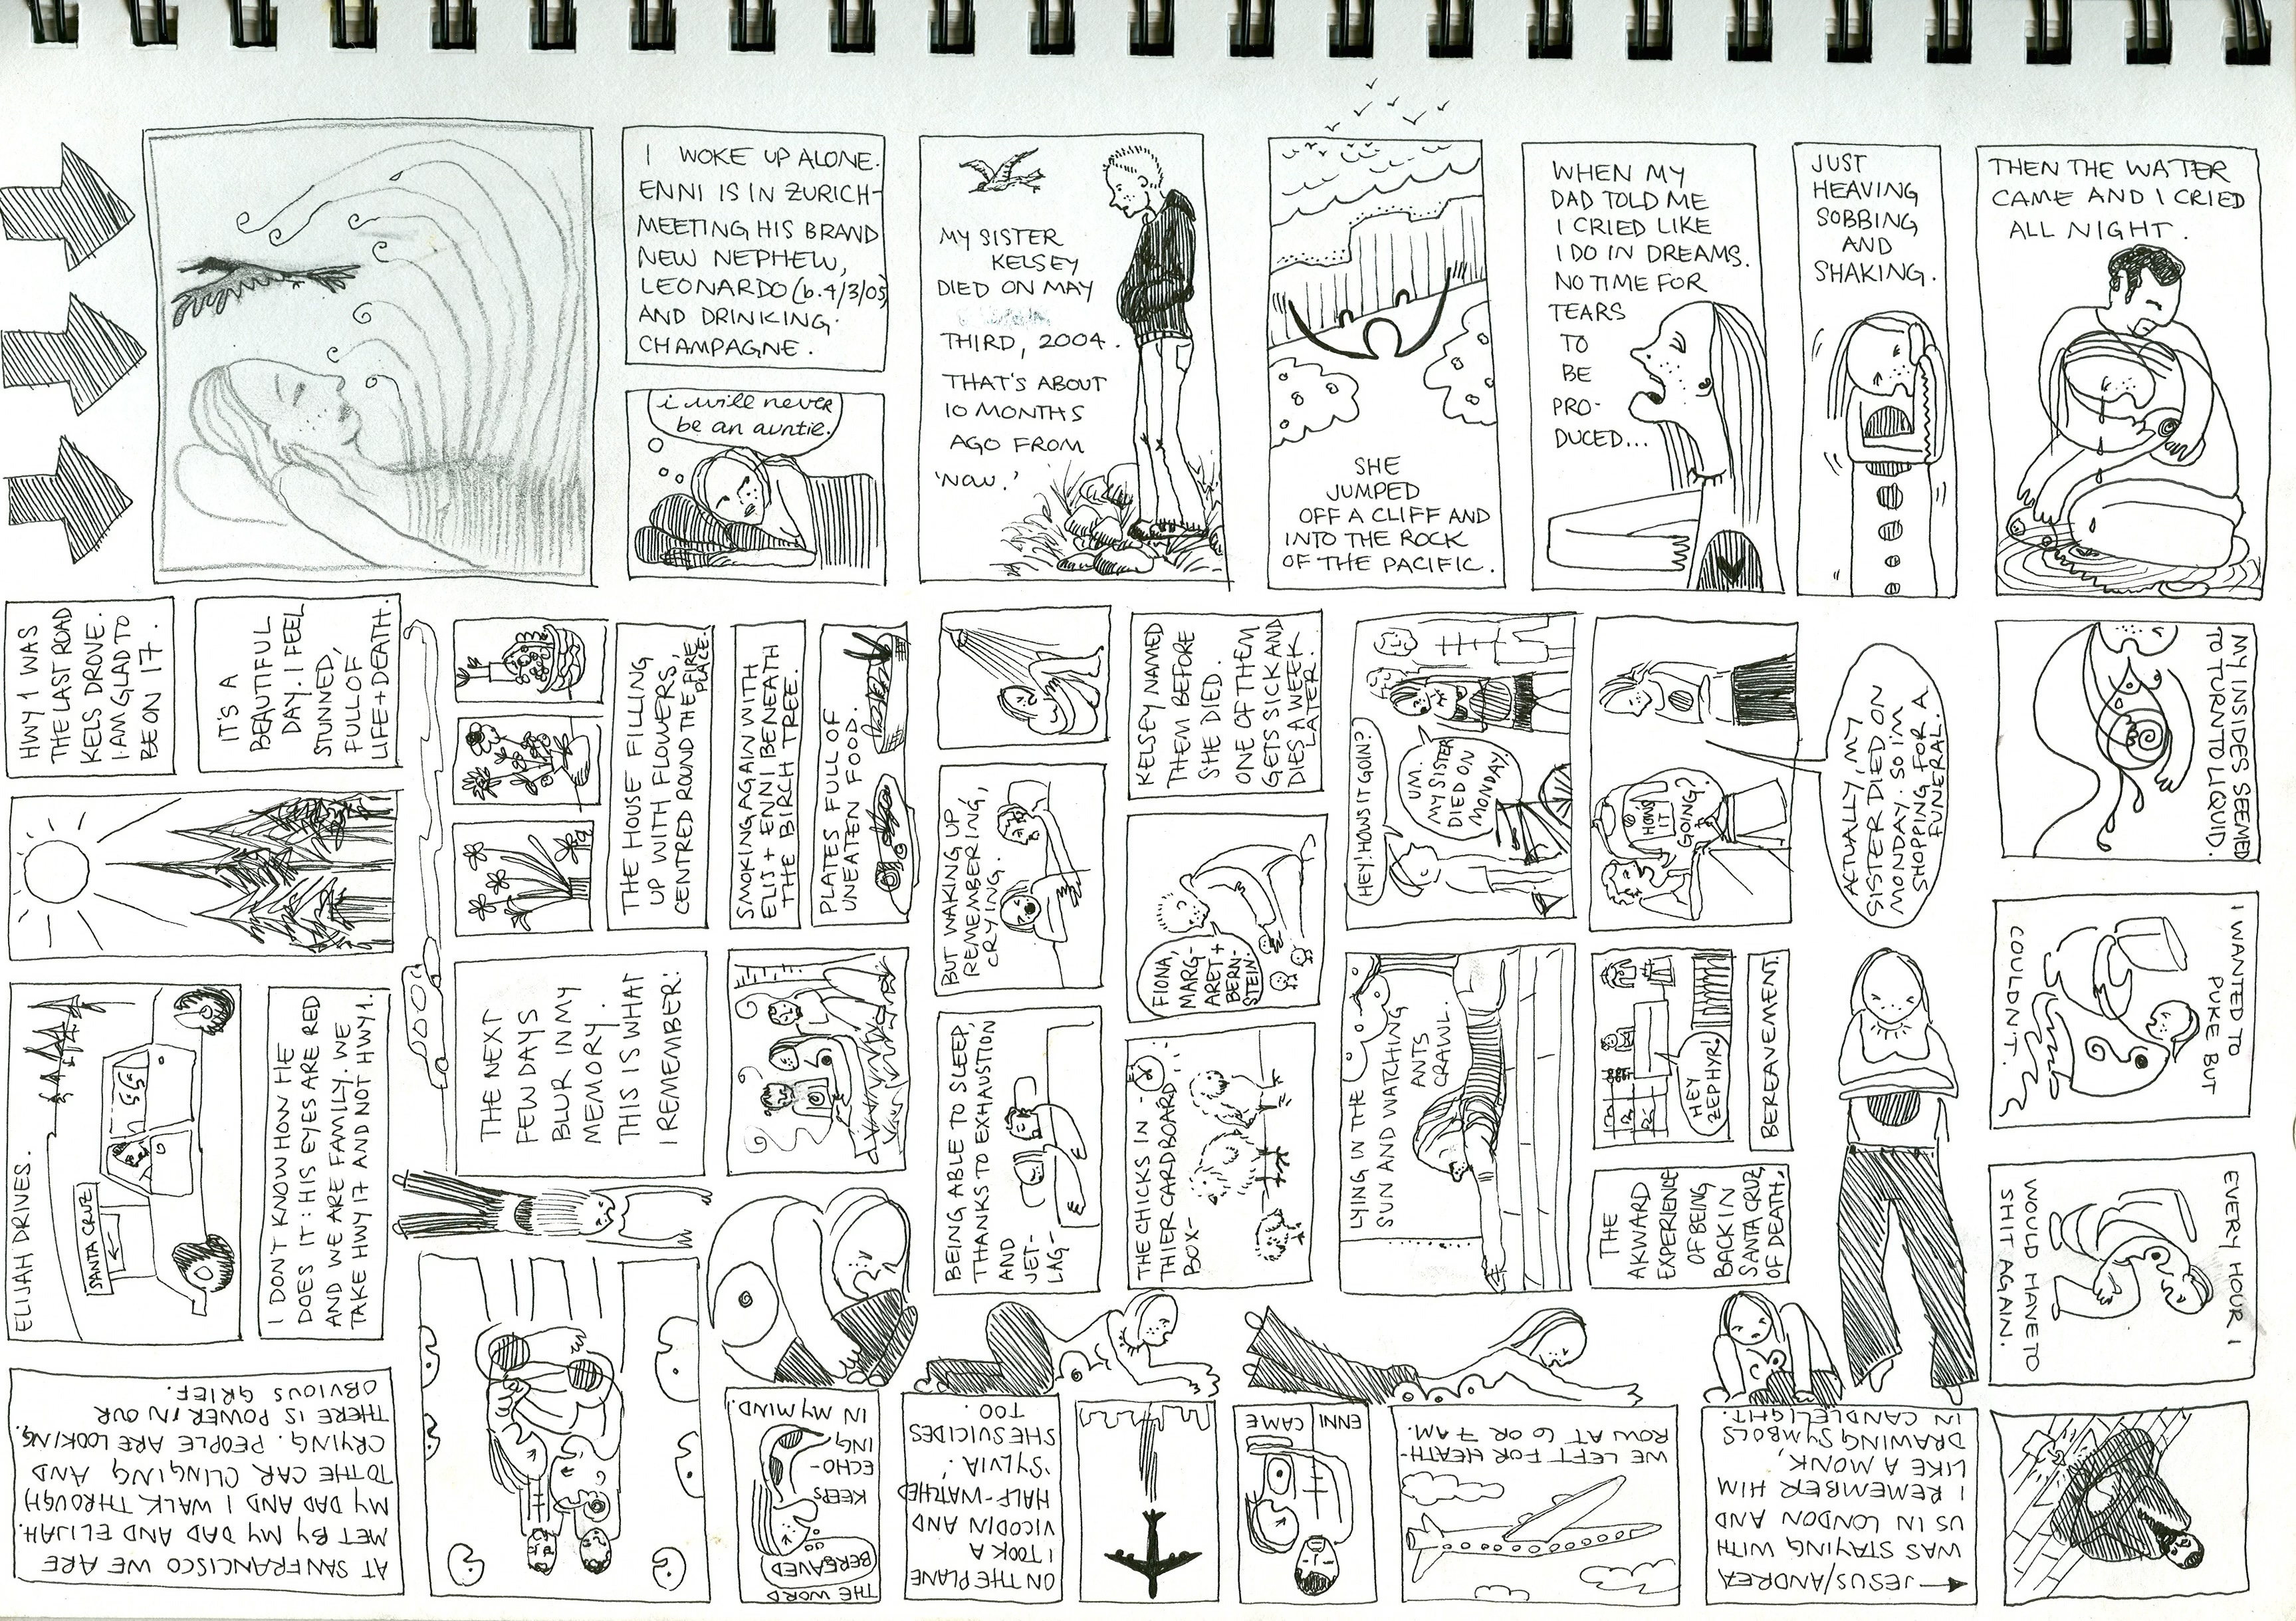 I WOKE UP ALONE.
ENNI IS IN ZURICH-
MEETING HIS BRAND
NEW NEPHEW,
LEONARDO (b. 4/3/05)
AND DRINKING
CHAMPAGNE.
i will never
be an auntie.
MY SISTER
KELSEY
DIED ON MAY
THIRD, 2004.
THAT'S ABOUT
10 MONTHS
AGO FROM
'NOW.'
SHE
JUMPED
OFF A CLIFF AND
INTO THE ROCK
OF THE PACIFIC.
WHEN MY
DAD TOLD ME
I CRIED LIKE
I DO IN DREAMS.
NO TIME FOR
TEARS
TO
BE
PRO-
DUCED...
JUST
HEAVING
SOBBING
AND
SHAKING.
THEN THE WATER
CAME AND I CRIED
ALL NIGHT.
MY INSIDES SEEMED
TO TURN TO LIQUID.
I WANTED TO
PUKE BUT
COULDN'T.
EVERY HOUR I
WOULD HAVE TO
SHIT AGAIN.
JESUS/ANDREA
WAS STAYING WITH
US IN LONDON AND
I REMEMBER HIM
LIKE A MONK,
DRAWING SYMBOLS
IN CANDLELIGHT.
WE LEFT FOR HEATH-
ROW AT 6 OR 7 AM.
ENNI CAME
ON THE PLANE
I TOOK A
VICODIN AND
HALF-WATCHED
'SYLVIA.'
SHE SUICIDES
TOO.
THE WORD
BEREAVED
KEEPS
ECHO-
ING
IN MY MIND.
AT SAN FRANCISCO WE ARE
MET BY MY DAD AND ELIJAH.
MY DAD AND I WALK THROUGH
TO THE CAR CLINGING AND
CRYING. PEOPLE ARE LOOKING.
THERE IS POWER IN OUR
OBVIOUS GRIEF.
ELIJAH DRIVES.
SANTA CRUZ
I DON'T KNOW HOW HE
DOES IT: HIS EYES ARE RED
AND WE ARE FAMILY. WE
TAKE HWY 17 AND NOT HWY 1.
HWY 1 WAS
THE LAST ROAD
KELS DROVE.
I AM GLAD TO
BE ON 17.
IT'S A
BEAUTIFUL
DAY. I FEEL
STUNNED,
FULL OF
LIFE+DEATH.
THE NEXT
FEW DAYS
BLUR IN MY
MEMORY.
THIS IS WHAT
I REMEMBER:
THE HOUSE FILLING
UP WITH FLOWERS,
CENTRED ROUND THE FIRE
PLACE.
SMOKING AGAIN WITH
ELIJ + ENNI BENEATH
THE BIRCH TREE.
PLATES FULL OF
UNEATEN FOOD.
BEING ABLE TO SLEEP,
THANKS TO EXHAUSTION
AND
JET-
LAG-
BUT WAKING UP,
REMEMBERING,
CRYING.
THE CHICKS IN
THIER CARDBOARD
BOX-
FIONA,
MARG-
ARET +
BERN-
STEIN.
KELSEY NAMED
THEM BEFORE
SHE DIED.
ONE OF THEM
GETS SICK AND
DIES A WEEK
LATER.
LYING IN THE
SUN AND WATCHING
ANTS
CRAWL.
HEY! HOWS IT GOIN?
UM.
MY SISTER
DIED ON
MONDAY.
THE
AKWARD
EXPERIENCE
OF BEING
BACK IN
SANTA CRUZ,
OF DEATH.
BEREAVEMENT.
HEY
ZEPHYR!
HOWS
IT
GOING?
ACTUALLY, MY
SISTER DIED ON
MONDAY. SO I'M
SHOPPING FOR A
FUNERAL.